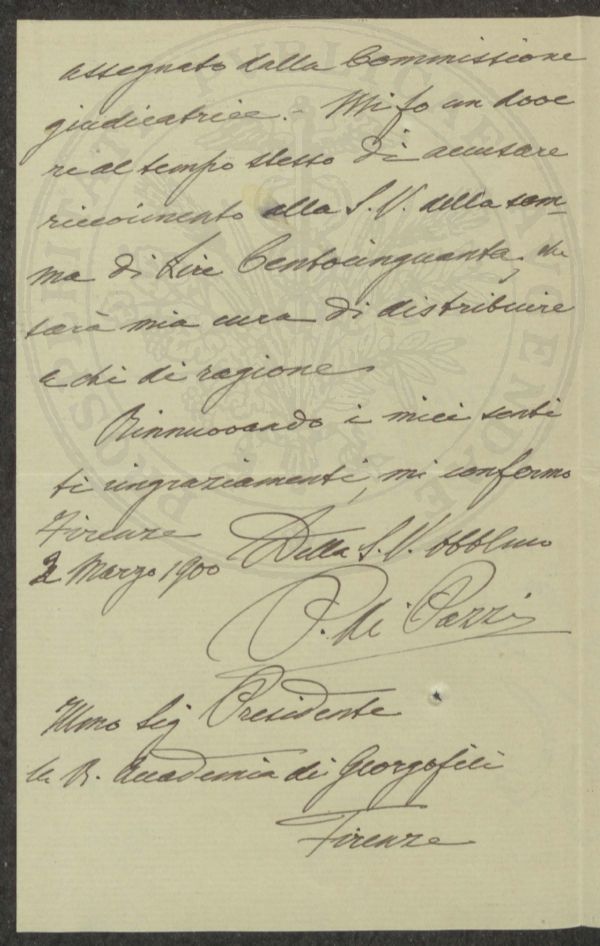 assegnato dalla Commissione
giudicatrice. - Mi fo un dove
re al tempo stesso di accusare
ricevimento alla S. V. della som-
ma di Lire Centocinquanta, che
sarà mia cura di distribuire
a chi di ragione
Rinnuovando i miei senti
ti ringraziamenti, mi confermo
Firenze
Della S. V. Obblmo
2 Marzo 1900
P. de' Pazzi
Illmo Sig Presidente
la R. Accademia dei Georgofili
Firenze
PROSPERITATI PUBLICAE AUGENDAE